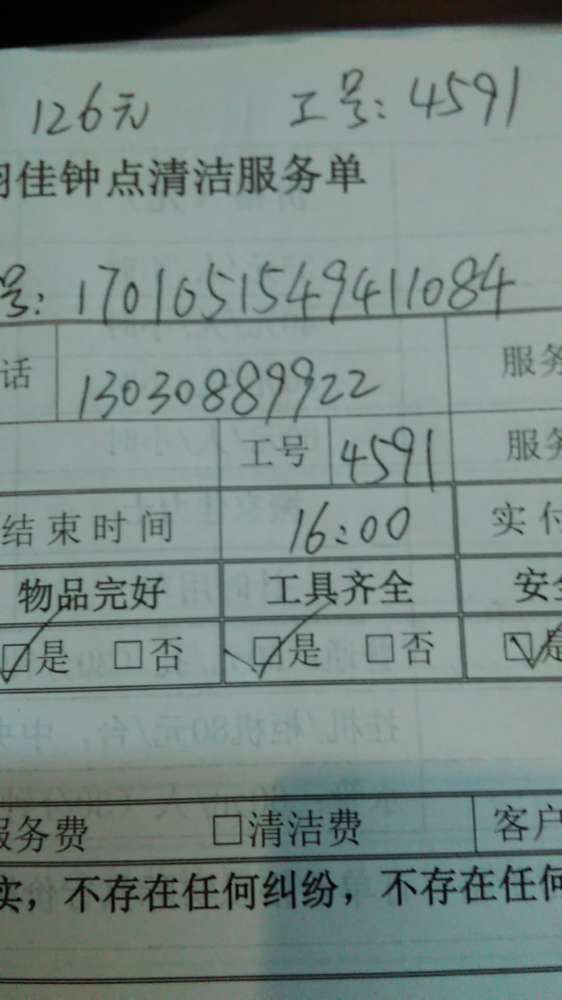 126元 工号: 4591
佳钟点清洁服务单
号: 1701651549411084
话 13030889922 服务
工号 4591 服务
结束时间 16:00 实付
物品完好 工具齐全 安全
□是 □否 □是 □否 □是
服务费 □清洁费 客户
实，不存在任何纠纷，不存在任何